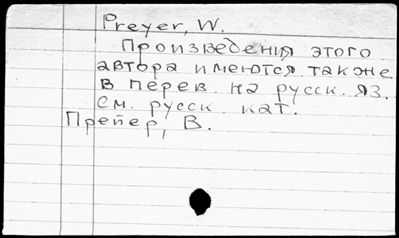 Preyer, W.
Произведения этого
автора имеются также
в перев. на русск. яз.
см. русск. кат.
Прейер, В.